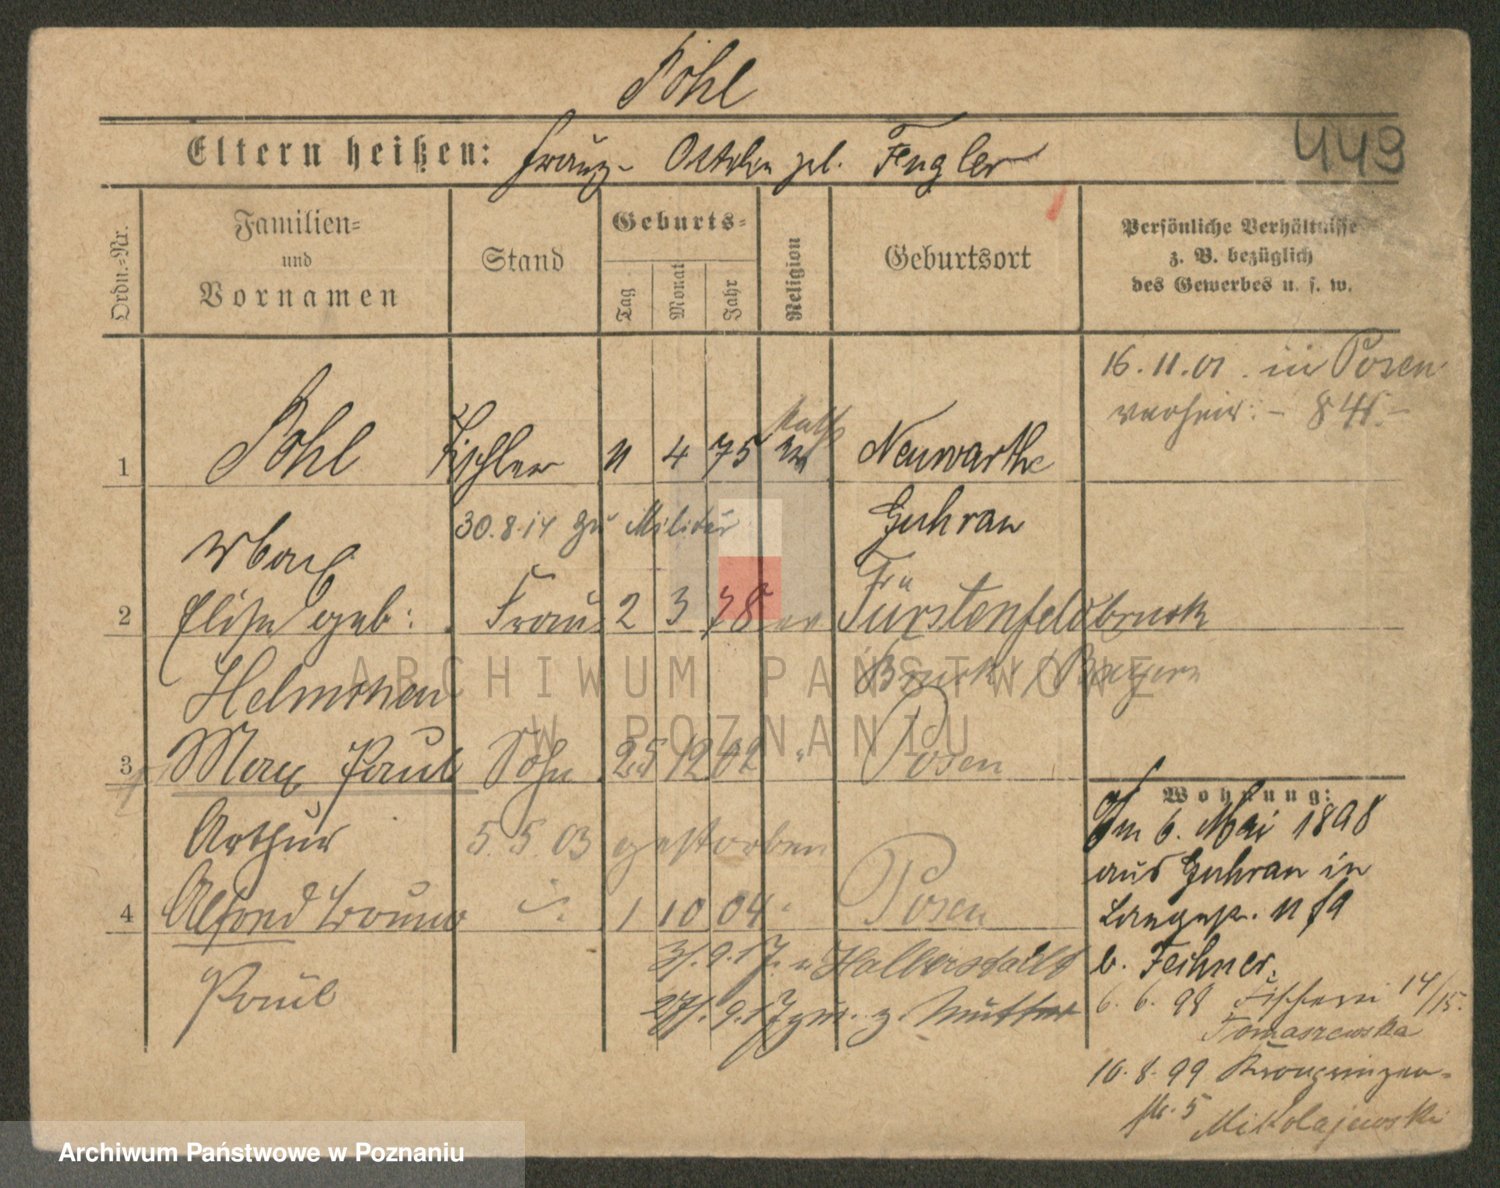 Pohl
449
Eltern heißen: Franz - Ottilie geb. Fengler
Ordn.-Nr.
Familien-
und
Vornamen
Stand
Geburts-
Tag
Monat
Jahr
Religion
Geburtsort
Persönliche Verhältnisse
z. B. bezüglich
des Gewerbes u. s. w.
16.11.01. in Posen
verheir. - 841.-
1 Pohl Tischler 11 4 75 kath Neuwarthe
30.8.14 zu Militär Guhrau
Max
2 Elise geb: Frau 2 3 78 Fürstenfeldbruck
Helmchen Bruck / Bayern
3 Max Paul Sohn 25 12 02 " Posen
Arthur 5.5.03 gestorben
4 Alfred Bruno 1 10 04 " Posen
Paul
31.9.17. n Halberstadt
27.9.17 z. Mutter
Wohnung:
Am 6. Mai 1898
aus Guhrau in
Langestr. 11
b. Feihner.
6. 6. 98 Fischerei 14/15.
Tomaszewska
10. 8. 99 Kronprinzen-
str. 5 Mikolajewski
ARCHIWUM PAŃSTWOWE
W POZNANIU
Archiwum Państwowe w Poznaniu